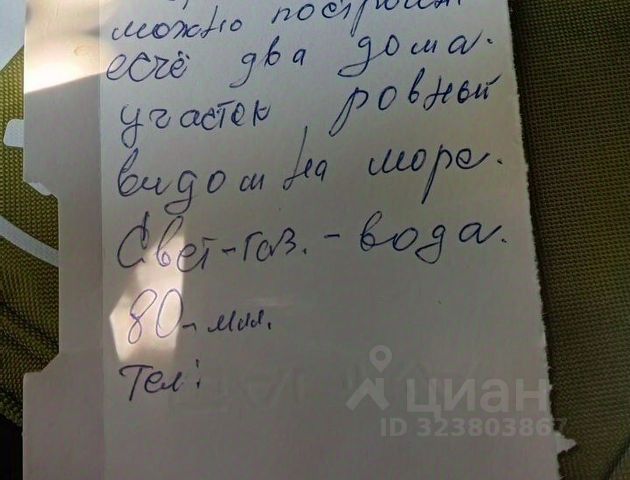 можно построить
есчё два дома.
участок ровный
видом на море.
Свет-газ.-вода.
80-мил.
Тел:
циан
ID 323803867